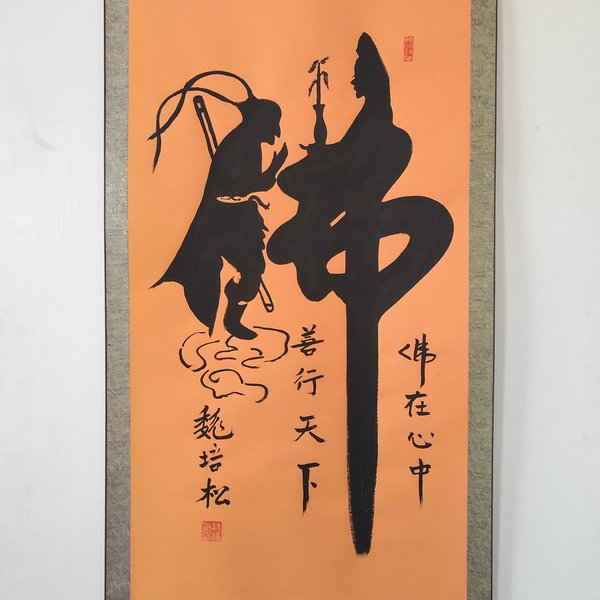 佛
佛在心中
善行天下
魏培松